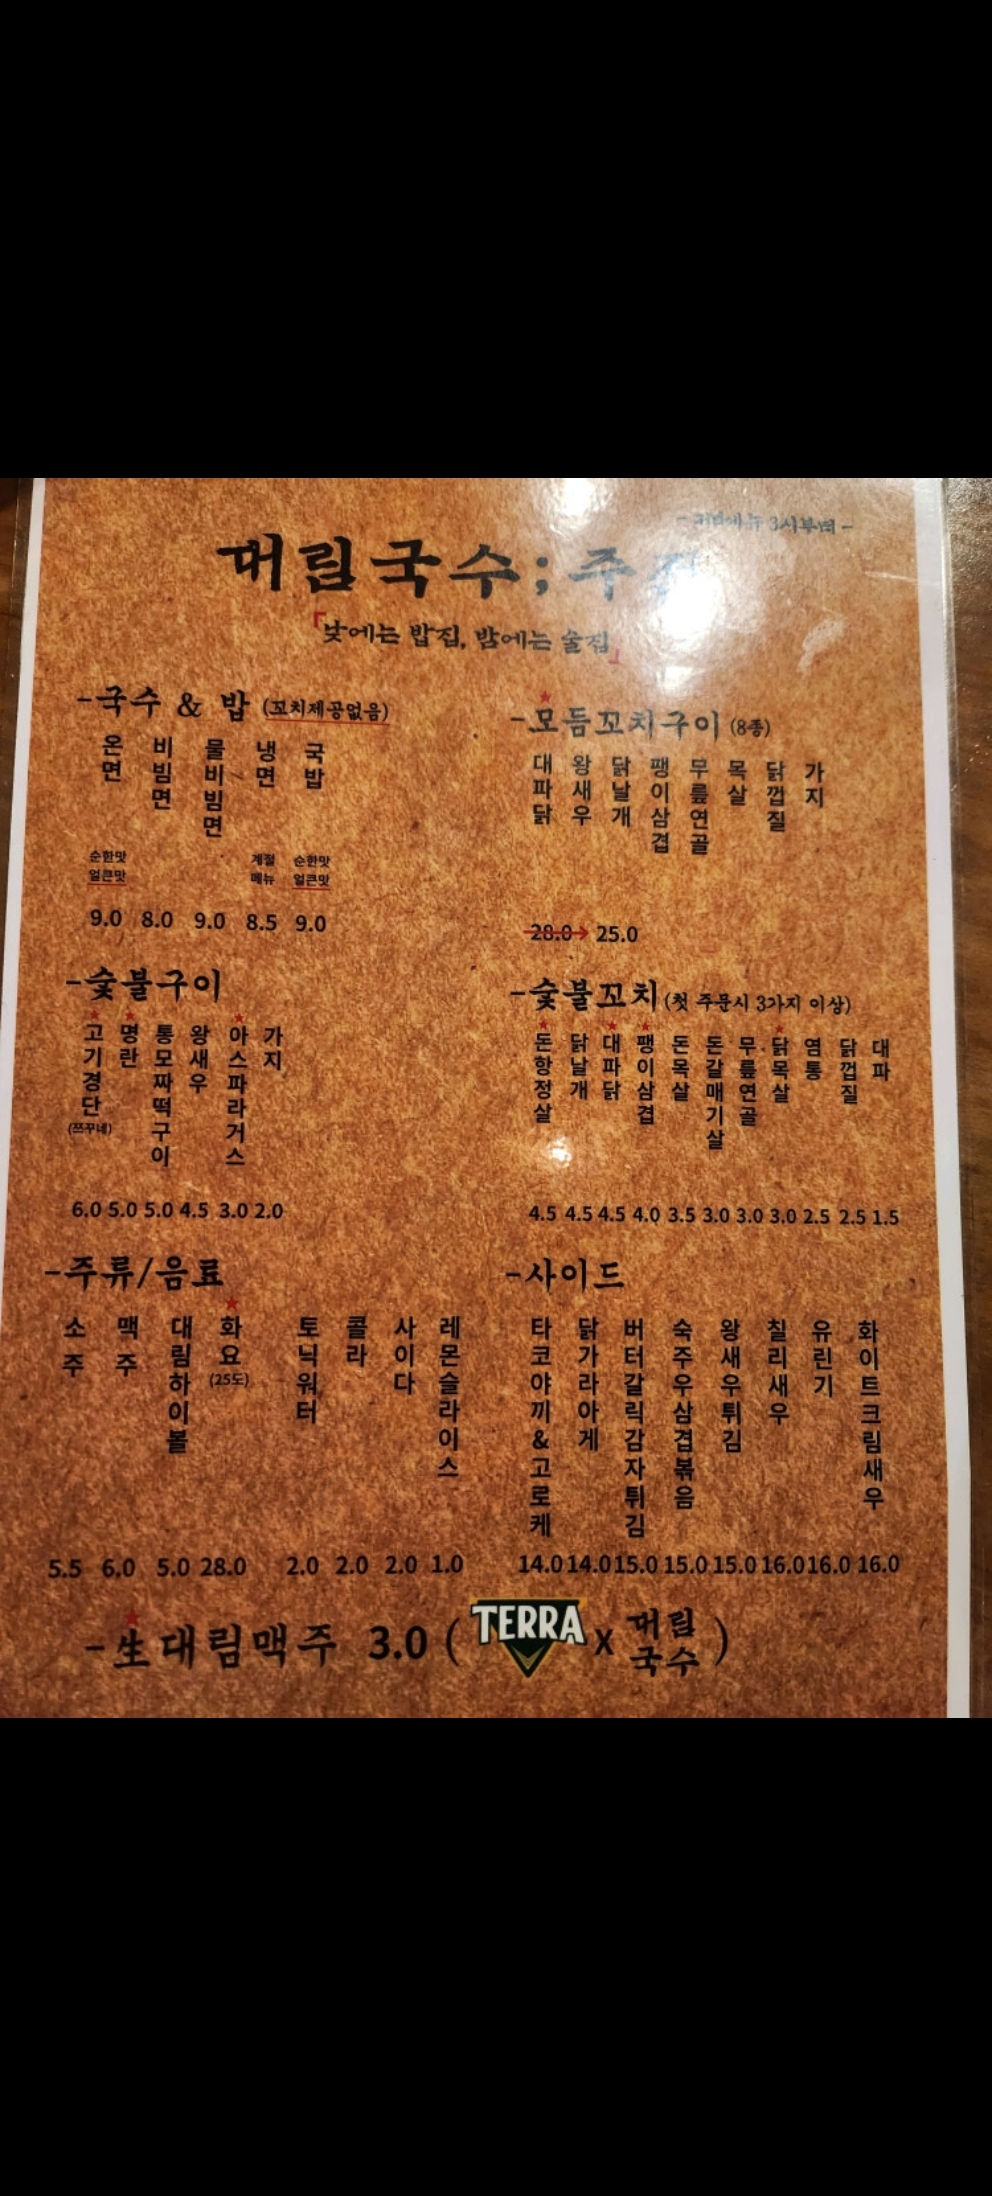 3시부터 -
대림국수; 주
「낮에는 밥집, 밤에는 술집」
-국수 & 밥 (꼬치제공없음)
온면 비빔면 물비빔면 냉면 국밥
순한맛 얼큰맛 계절메뉴 순한맛 얼큰맛
9.0 8.0 9.0 8.5 9.0
★
-모듬꼬치구이 (8종)
대파닭 왕새우 닭날개 팽이삼겹 무릎연골 목살 닭껍질 가지
28.0→ 25.0
-숯불구이
★고기경단(쯔꾸네) ★명란 통모짜떡구이 왕새우 ★아스파라거스 가지
6.0 5.0 5.0 4.5 3.0 2.0
-숯불꼬치 (첫 주문시 3가지 이상)
★돈항정살 닭날개 ★대파닭 ★팽이삼겹 돈목살 돈갈매기살 무릎연골 ★닭목살 염통 닭껍질 대파
4.5 4.5 4.5 4.0 3.5 3.0 3.0 3.0 2.5 2.5 1.5
-주류/음료
소주 맥주 대림하이볼 ★화요(25도) 토닉워터 콜라 사이다 레몬슬라이스
5.5 6.0 5.0 28.0 2.0 2.0 2.0 1.0
-사이드
타코야끼&고로케 닭가라아게 버터갈릭감자튀김 숙주우삼겹볶음 왕새우튀김 칠리새우 유린기 화이트크림새우
14.0 14.0 15.0 15.0 15.0 16.0 16.0 16.0
★
-生대림맥주 3.0 ( TERRA X 대림국수 )